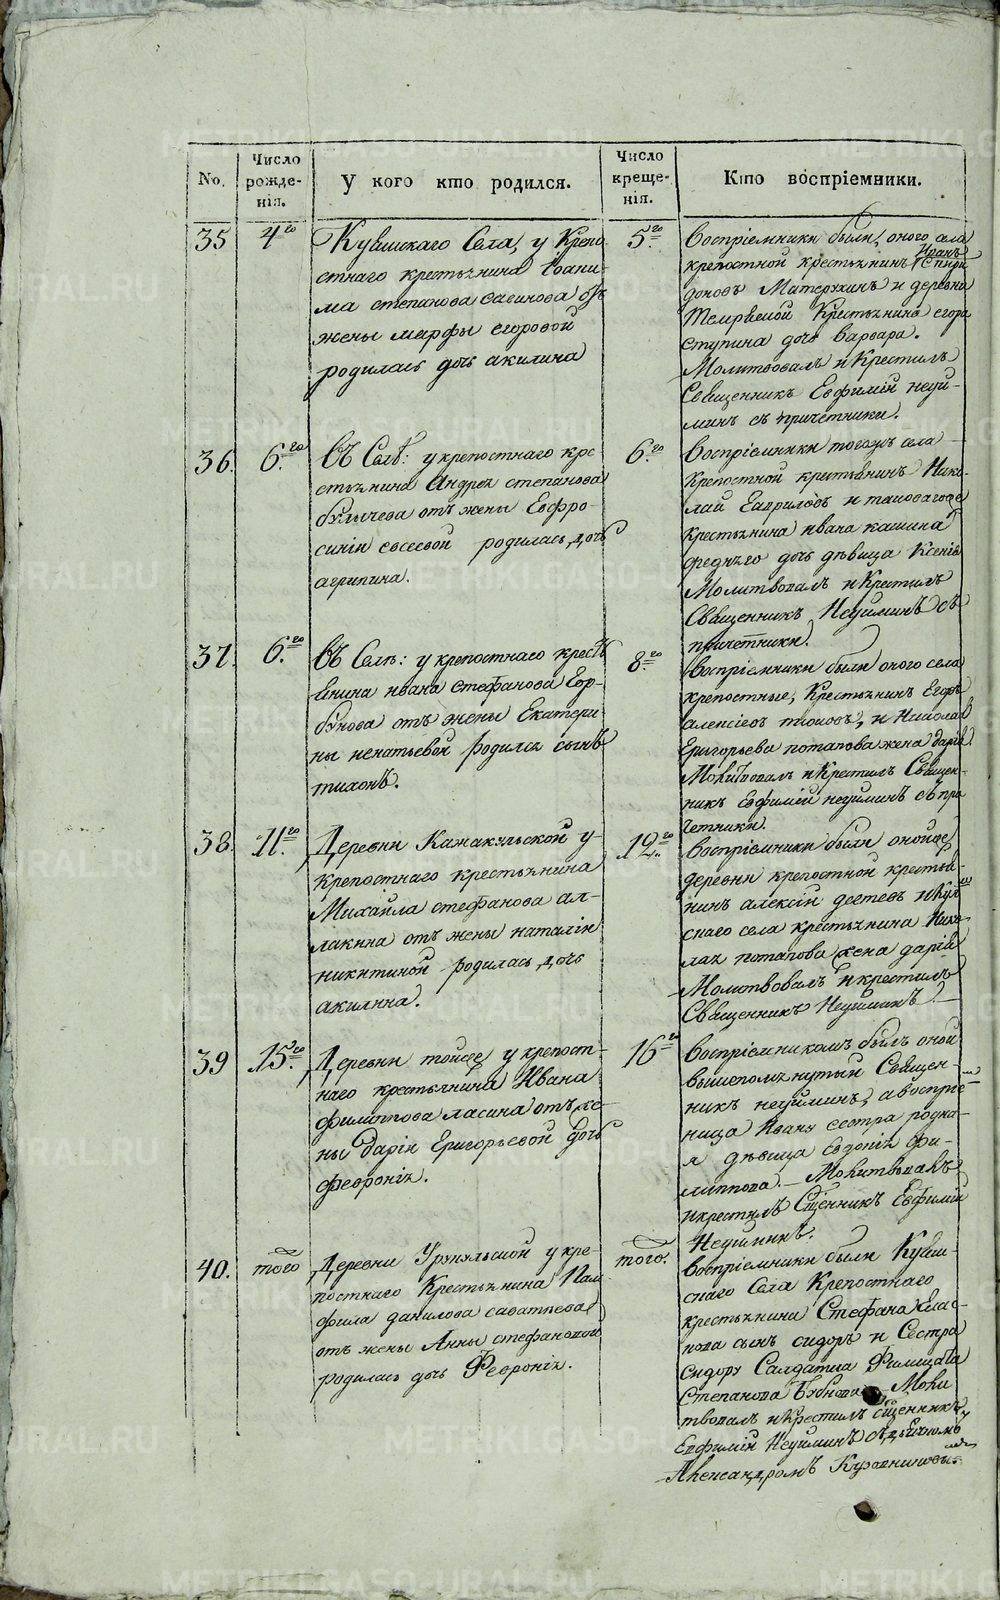 No.
Число
рожде-
нія.
У кого кто родился.
Число
креще-
нія.
Кто воспріемники.
35
4го
Села, у Крепо
стнаго крестьянина Іоаки-
ма степанова отъ
жены марфы егоровой
родилась дочь акилина
5го
Воспріемники были, оного села
крепостной крестьянинъ Иванъ Спири
доновъ Матерухинъ и деревни
Крестьянина егора
ступина дочь варвара.
Молитвовалъ и Крестилъ
Священникъ Евфимій неуй-
минъ съ причетники.
36.
6го
Въ Селѣ: у крепостнаго кре
стьянина Андрея степанова
булычева отъ жены Евфро-
синіи евсеевой родилась дочь
агрипина.
6го
Воспріемники тогожъ села
крепостной крестьянинъ Нико-
лай Гавриловъ и тановагоже
крестьянина ивана кашина
дочь дѣвица Ксенія
Молитвовалъ и Крестилъ
Священникъ Неуйминъ съ
причетники.
37.
6го
Въ Селѣ: у крепостнаго кресть
янина ивана Стефанова Гор-
бунова отъ жены Екатери
ны игнатьевой родился сынъ
тихонъ.
8го
Воспріемники были оного села
крепостные, Крестьянинъ Егоръ
алексіевъ и Николая
Григорьева потапова жена дарія
Молитвовалъ и Крестилъ Священ-
никъ Евфимій неуйминъ съ при
четники.
38.
11го
Деревни у
Крепостнаго крестьянина
Михайла стефанова ал-
лакина отъ жены наталіи
никитиной родилась дочь
акилина.
12го
Воспріемники были оной же
деревни крепостной крестья-
нинъ алексій и
скаго села крестьянина Нико-
лая потапова жена дарія
Молитвовалъ и крестилъ
Священникъ Неуйминъ.
39
15го
Деревни тойже у крепост-
наго крестьянина Ивана
филиппова ласина отъ же-
ны Даріи Григорьевой дочь
феоронія.
16го
Воспріемникомъ былъ оной
вышепомянутый Священ-
никъ неуйминъ, а воспріе-
ница Ивану сестра родна-
я дѣвица Евдокія фи-
липпова. — Молитвовалъ
и крестилъ Сщенникъ Евфимій
Неуйминъ.
40.
того
Деревни у кре-
постнаго Крестьянина Пам
фила данилова саватѣева
отъ жены Анны стефановой
родилась дочь Феоронія.
того.
Воспріемники были
скаго Села Крепостнаго
крестьянина Стефана
пова сынъ сидоръ и Сестра
сидору Салдатка Филицата
Степанова Бубнова — Моли
твовалъ и Крестилъ Сщенникъ
Евфимій Неуйминъ съ дьячкомъ
Александромъ